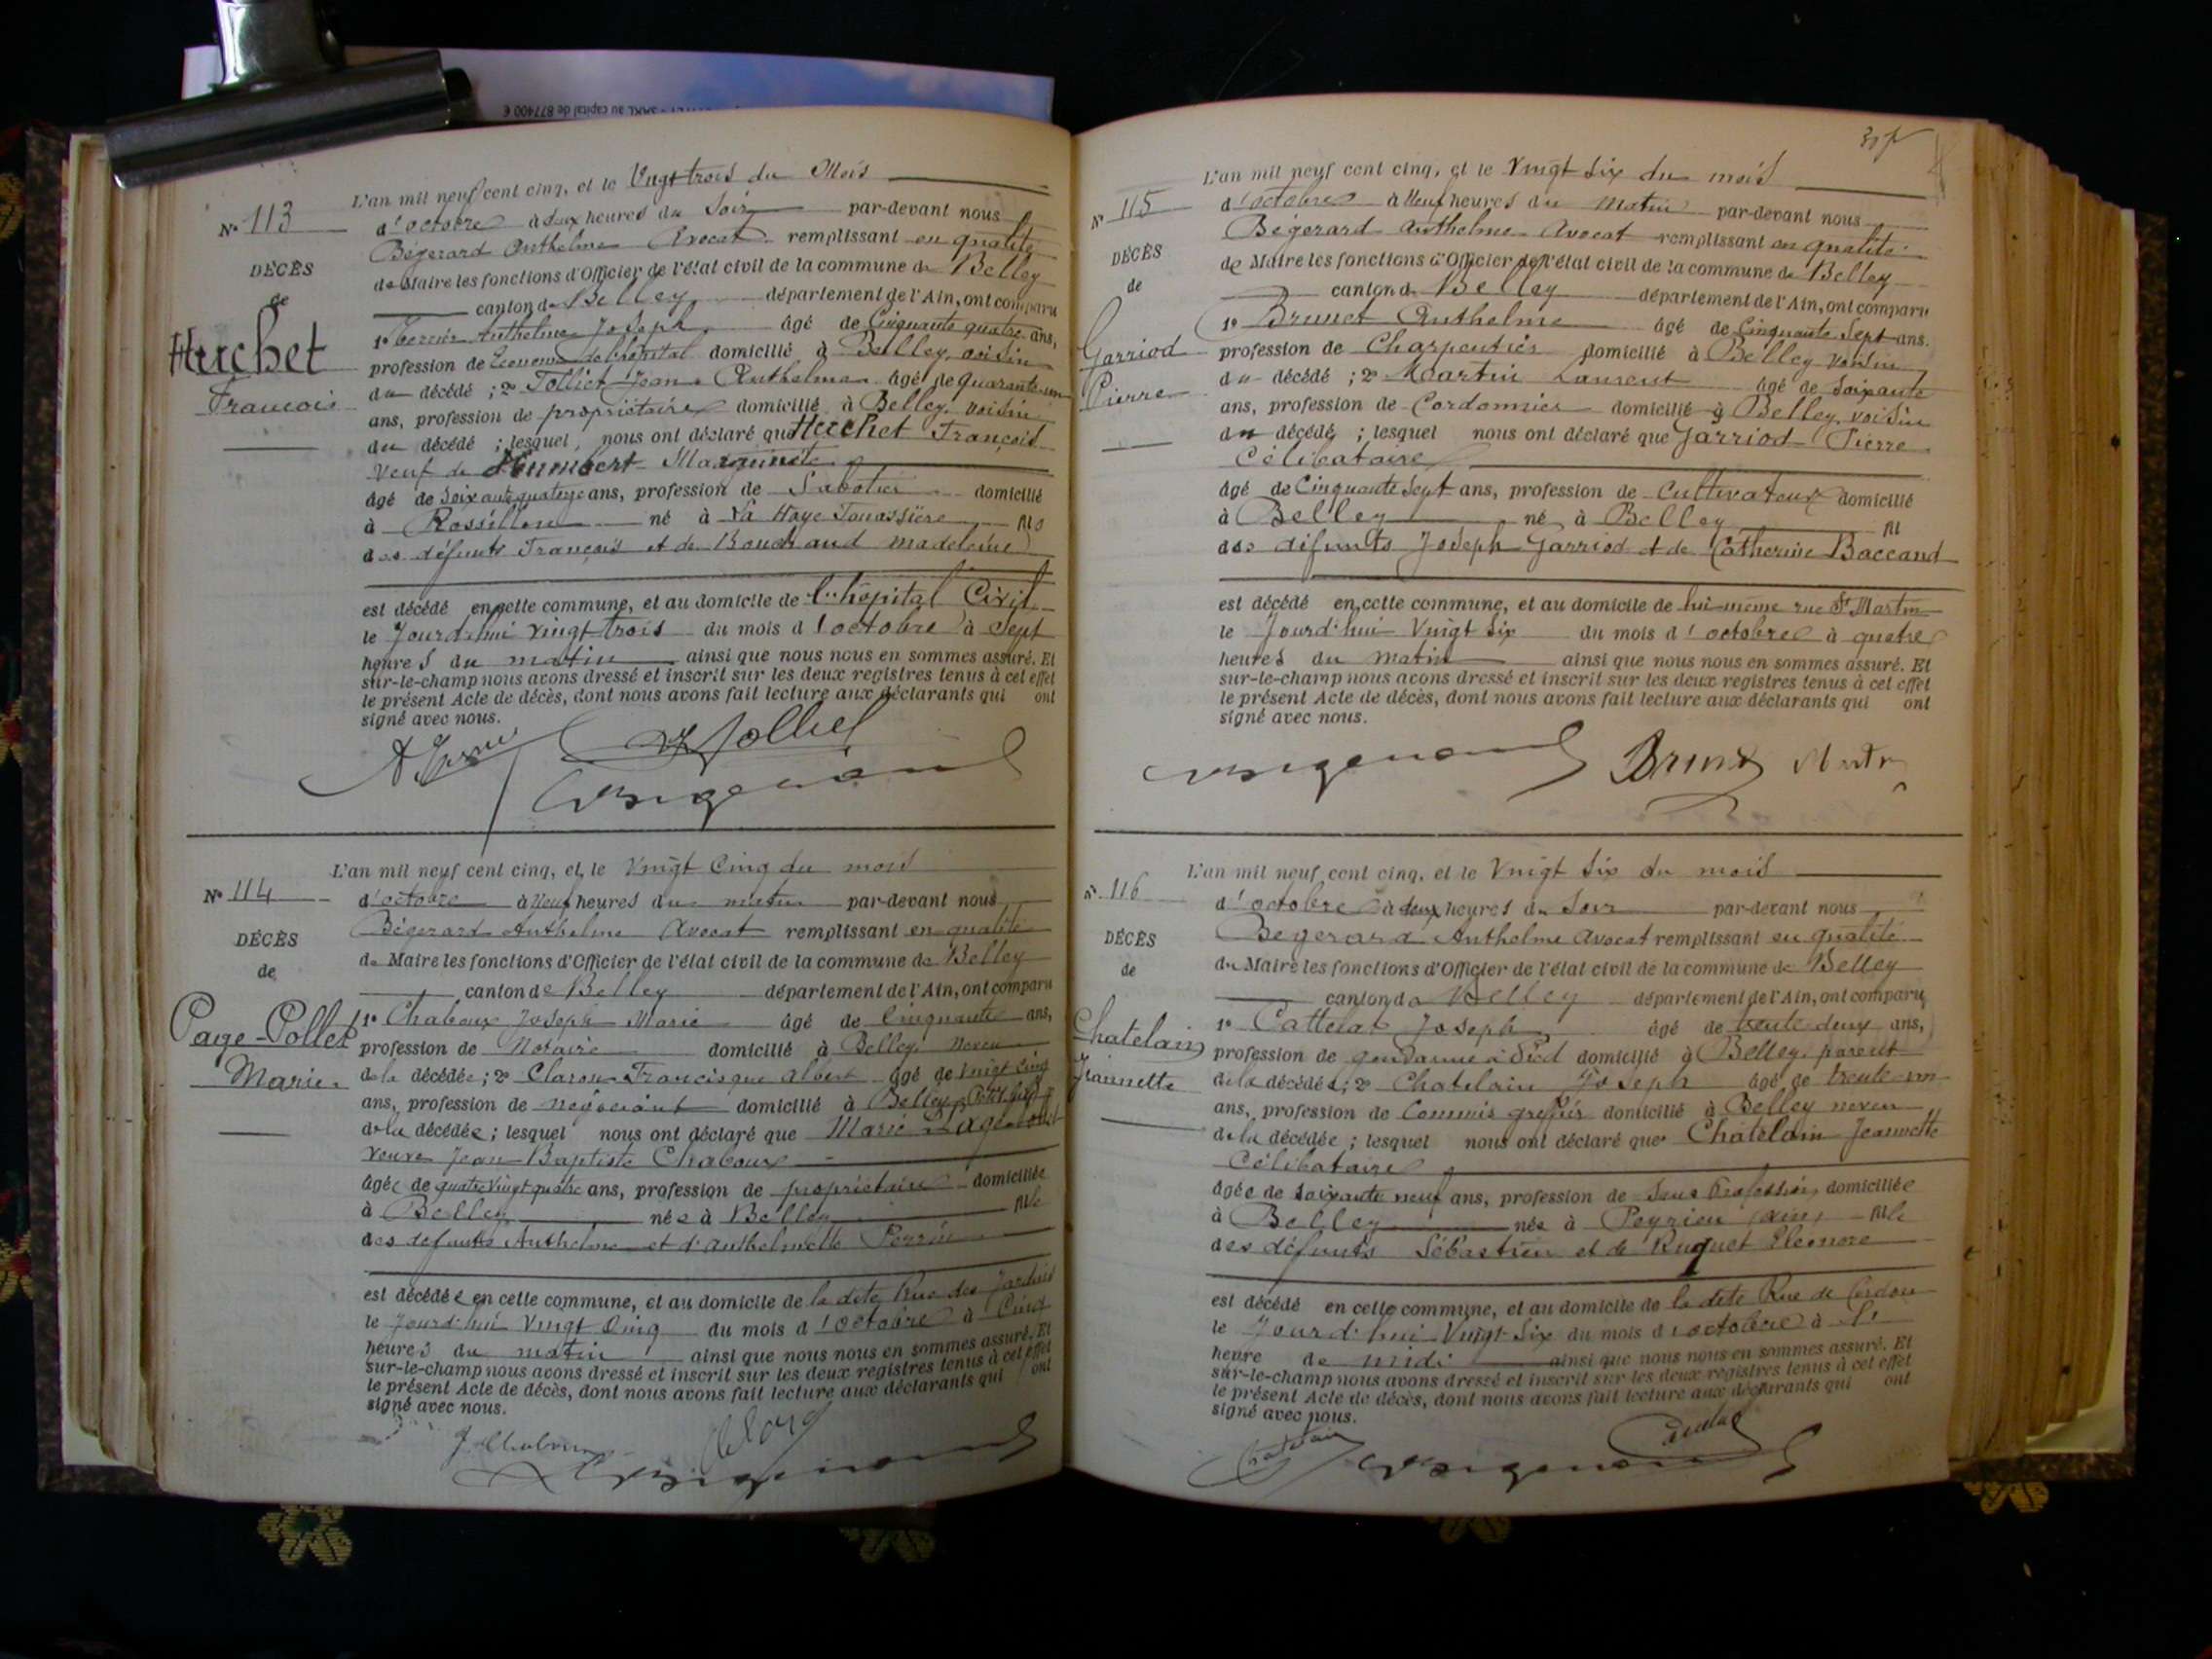 SARL au capital de 877400 €
N° 113
DÉCÈS
de
Huchet
François
L'an mil neuf cent cinq, et le Vingt trois du Mois
d'octobre à deux heures du Soir par-devant nous
Bégerard Anthelme Avocat remplissant en qualité
de Maire les fonctions d'Officier de l'état civil de la commune de Belley
canton de Belley département de l'Ain, ont comparu
1° Anthelme Joseph âgé de Cinquante quatre ans,
profession de Econome de l'hôpital domicilié à Belley, voisin
du décédé ; 2° Tolliet Jean Anthelme âgé de quarante un
ans, profession de propriétaire domicilié à Belley, voisin
du décédé ; lesquel nous ont déclaré que Huchet François
Veuf de Humbert Marguerite
âgé de Soixante quatorze ans, profession de Sabotier domicilié
à Rossillon né à La Haye Fouassière fils
des défunts François et de Bouchaud Madeleine
est décédé en cette commune, et au domicile de l'hôpital Civil
le Jourd'hui vingt trois du mois d'octobre à Sept
heures du matin ainsi que nous nous en sommes assuré. Et
sur-le-champ nous avons dressé et inscrit sur les deux registres tenus à cet effet
le présent Acte de décès, dont nous avons fait lecture aux déclarants qui ont
signé avec nous.
Tolliet
N° 114
DÉCÈS
de
Page-Pollet
Marie
L'an mil neuf cent cinq, et le Vingt Cinq du mois
d'octobre à Neuf heures du matin par-devant nous
Bégerard Anthelme Avocat remplissant en qualité
de Maire les fonctions d'Officier de l'état civil de la commune de Belley
canton de Belley département de l'Ain, ont comparu
1° Chaboux Joseph Marie âgé de Cinquante ans,
profession de Notaire domicilié à Belley, neveu
de la décédée ; 2° Claron Francisque Albert âgé de vingt cinq
ans, profession de négociant domicilié à Belley, Petit fils
de la décédée ; lesquel nous ont déclaré que Marie Page-Pollet
veuve Jean Baptiste Chaboux
âgée de quatre vingt quatre ans, profession de propriétaire domiciliée
à Belley née à Belley fille
des défunts Anthelme et d'Anthelmette Perrin
est décédée en cette commune, et au domicile de la dite Rue des Jardins
le Jourd'hui Vingt Cinq du mois d'octobre à Cinq
heures du matin ainsi que nous nous en sommes assuré. Et
sur-le-champ nous avons dressé et inscrit sur les deux registres tenus à cet effet
le présent Acte de décès, dont nous avons fait lecture aux déclarants qui ont
signé avec nous.
J. Chaboux
N° 115
DÉCÈS
de
Garriod
Pierre
L'an mil neuf cent cinq, et le Vingt Six du mois
d'octobre à Neuf heures du Matin par-devant nous
Bégerard Anthelme Avocat remplissant en qualité
de Maire les fonctions d'Officier de l'état civil de la commune de Belley
canton de Belley département de l'Ain, ont comparu
1° Brunet Anthelme âgé de Cinquante Sept ans.
profession de Charpentier domicilié à Belley voisin
du décédé ; 2° Martin Laurent âgé de Soixante
ans, profession de Cordonnier domicilié à Belley, voisin
du décédé ; lesquel nous ont déclaré que Garriod Pierre
Célibataire
âgé de Cinquante Sept ans, profession de Cultivateur domicilié
à Belley né à Belley fil
des défunts Joseph Garriod et de Catherine Baccand
est décédé en cette commune, et au domicile de lui-même rue St Martin
le Jourd'hui Vingt Six du mois d'octobre à quatre
heures du Matin ainsi que nous nous en sommes assuré. Et
sur-le-champ nous avons dressé et inscrit sur les deux registres tenus à cet effet
le présent Acte de décès, dont nous avons fait lecture aux déclarants qui ont
signé avec nous.
Brunet Martin
N° 116
DÉCÈS
de
Chatelain
Jeannette
L'an mil neuf cent cinq, et le Vingt Six du mois
d'octobre à deux heures du Soir par-devant nous
Bégerard Anthelme Avocat remplissant en qualité
de Maire les fonctions d'Officier de l'état civil de la commune de Belley
canton de Belley département de l'Ain, ont comparu
1° Cattelat Joseph âgé de trente deux ans,
profession de gendarme à Pied domicilié à Belley, parent
de la décédée ; 2° Chatelain Joseph âgé de trente un
ans, profession de Commis greffier domicilié à Belley neveu
de la décédée ; lesquel nous ont déclaré que Chatelain Jeannette
Célibataire
âgée de Soixante neuf ans, profession de Sans Profession domiciliée
à Belley née à Peyrieu (Ain) fille
des défunts Sébastien et de Ruquet Eléonore
est décédé en cette commune, et au domicile de la dite Rue de Cordon
le Jourd'hui Vingt-Six du mois d'octobre à
heure de midi ainsi que nous nous en sommes assuré. Et
sur-le-champ nous avons dressé et inscrit sur les deux registres tenus à cet effet
le présent Acte de décès, dont nous avons fait lecture aux déclarants qui ont
signé avec nous.
Chatelain